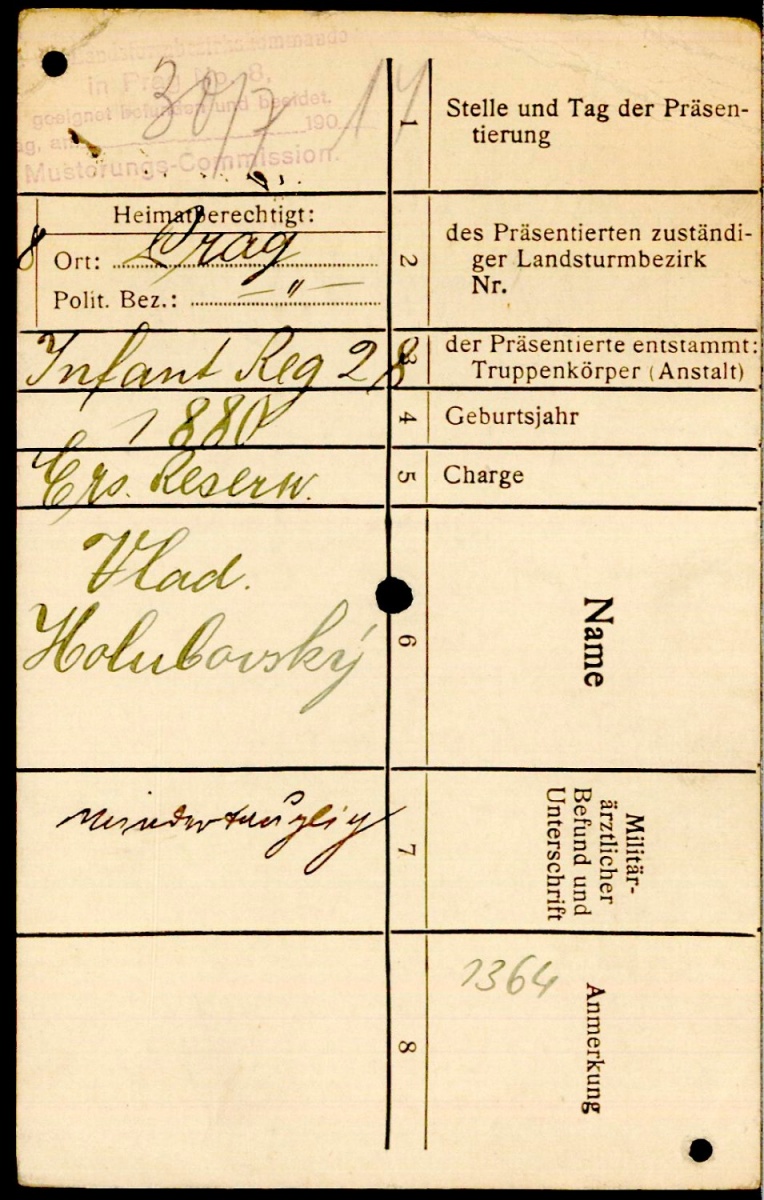 Landsturmbezirkskommando
in Prag No. 8,
geeignet befunden und beeidet.
190
Musterungs-Commission.
30/7 14
1
Stelle und Tag der Präsen-
tierung
Heimatberechtigt:
8
Ort: Prag
Polit. Bez.: — " —
2
des Präsentierten zuständi-
ger Landsturmbezirk
Nr.
Infant Reg 28
3
der Präsentierte entstammt:
Truppenkörper (Anstalt)
1880
4
Geburtsjahr
Ers. Reserv.
5
Charge
Vlad.
Holubovský
6
Name
mindertauglich
7
Militär-
ärztlicher
Befund und
Unterschrift
8
1364
Anmerkung